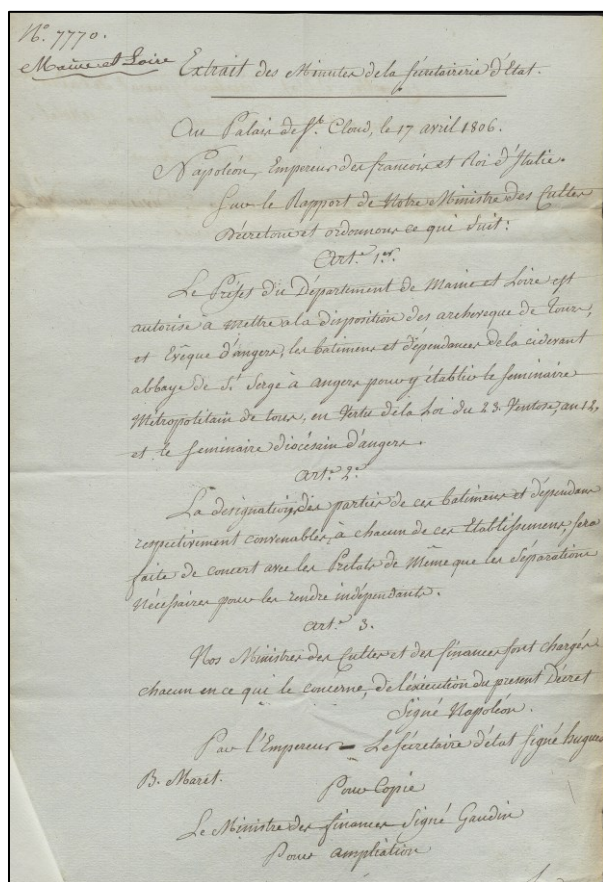 N.o 7770.
Maine et Loire
Extrait des Minutes de la Sécrétairerie d'Etat.
Au Palais de St. Cloud, le 17 avril 1806.
Napoléon, Empereur des françois et Roi d'Italie.
Sur le Rapport de Notre Ministre des Cultes
Décretons et ordonnons ce qui Suit:
Art.e 1er.
Le Préfet du Département de Maine et Loire est
autorisé à Mettre a la disposition des archevêque de Tours,
et Evêque d'angers, les batimens et dépendances de la cidevant
abbaye de St. Serge à angers pour y établir le Seminaire
Métropolitain de tours, en Vertu de la Loi du 23. Ventose, an 12,
et le Seminaire diocésain d'angers.
Art.e 2e
La désignation des parties de ces batimens et dépendans
respectivement convenables, à chacun de ces Etablissemens, sera
faite de concert avec les Prelats de Même que les Séparations
Nécessaires pour les rendre indépendants.
Art.e 3.
Nos Ministres des Cultes et des finances sont chargés
chacun en ce qui le concerne, de l'exécution du present Décret
Signé Napoléon.
Par l'Empereur - Le Sécretaire d'état Signé hugues
B. Maret.
Pour Copie
Le Ministre des finances Signé Gaudin
Pour ampliation